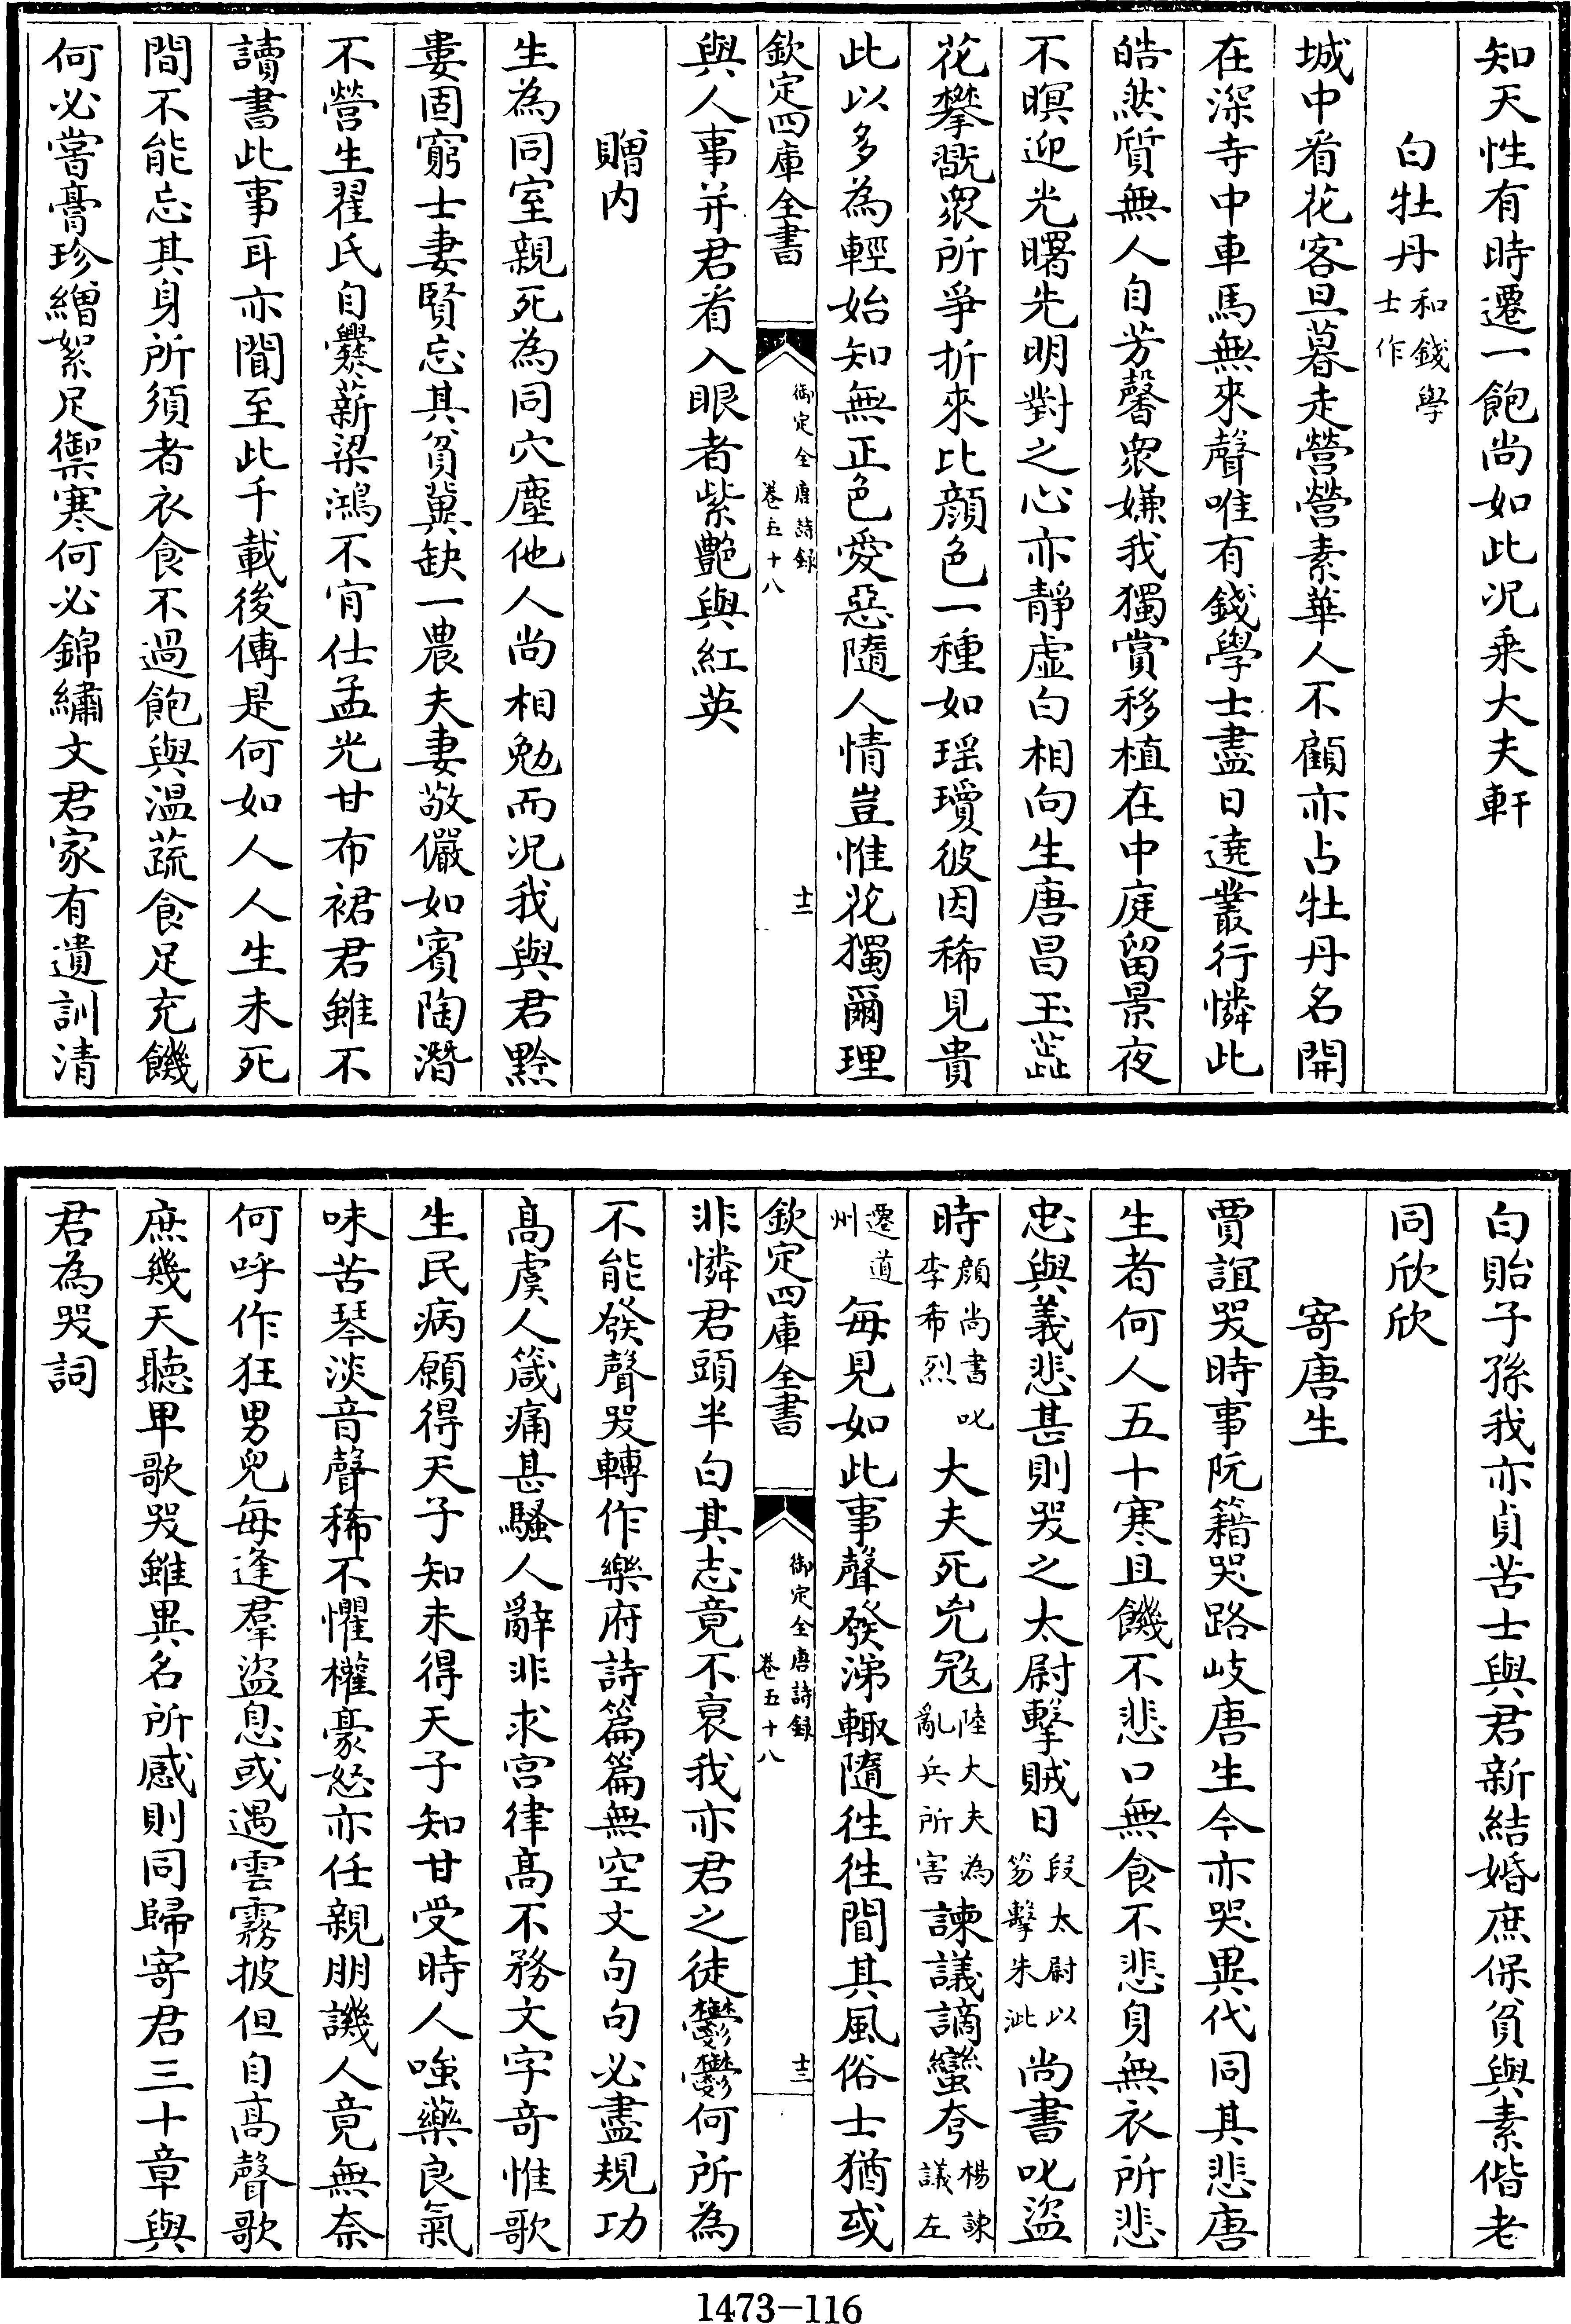 知天性有時遷一飽尚如此况乘大夫軒
白牡丹和錢學士作
城中看花客旦暮走營營素華人不顧亦占牡丹名開
在深寺中車馬無來聲唯有錢學士盡日遶叢行憐此
皓然質無人自芳馨衆嫌我獨賞移植在中庭留景夜
不暝迎光曙先明對之心亦靜虛白相向生唐昌玉蕋
花攀翫衆所爭折來比顔色一種如瑶瓊彼因稀見貴
此以多為輕始知無正色愛惡隨人情豈惟花獨爾理
欽定四庫全書 御定全唐詩録 卷五十八 十二
與人事并君看入眼者紫艷與紅英
贈内
生為同室親死為同穴塵他人尚相勉而况我與君黔
婁固窮士妻賢忘其貧冀缺一農夫妻敬儼如賓陶潛
不營生翟氏自爨薪梁鴻不肎仕孟光甘布裙君雖不
讀書此事耳亦聞至此千載後傳是何如人人生未死
間不能忘其身所須者衣食不過飽與温蔬食足充饑
何必膏粱珍繒絮足禦寒何必錦繡文君家有遺訓清
白貽子孫我亦貞苦士與君新結婚庶保貧與素偕老
同欣欣
寄唐生
賈誼哭時事阮籍哭路岐唐生今亦哭異代同其悲唐
生者何人五十寒且饑不悲口無食不悲身無衣所悲
忠與義悲甚則哭之太尉擊賊日段太尉以笏擊朱泚尚書叱盜
時顔尚書叱李希烈大夫死兇宼陸大夫為亂兵所害諫議謫蠻夸楊諫議左
遷道州每見如此事聲發涕輙隨往往聞其風俗士猶或
欽定四庫全書 御定全唐詩録 卷五十八 十三
非憐君頭半白其志竟不衰我亦君之徒鬱鬱何所為
不能發聲哭轉作樂府詩篇篇無空文句句必盡規功
髙虞人箴痛甚騷人辭非求宫律髙不務文字竒惟歌
生民病願得天子知未得天子知甘受時人嗤藥良氣
味苦琴淡音聲稀不懼權豪怒亦任親朋譏人竟無奈
何呼作狂男兒每逢羣盜息或遇雲霧披但自髙聲歌
庶幾天聽卑歌哭雖異名所感則同歸寄君三十章與
君為哭詞
1473—116